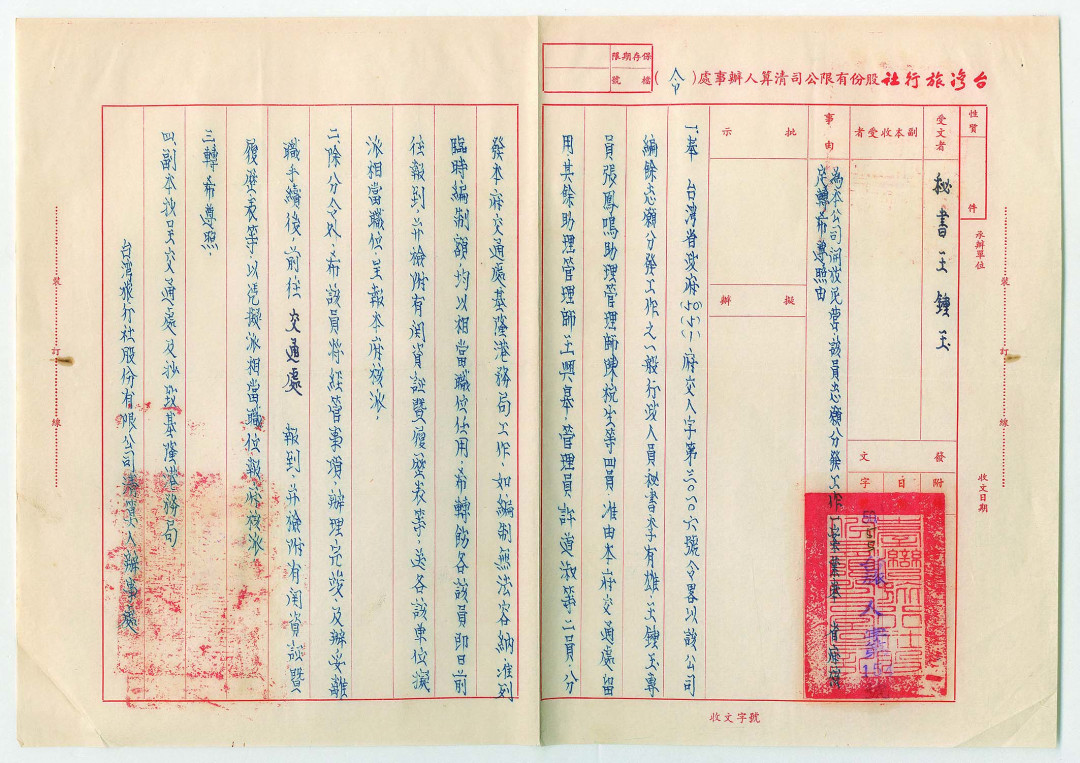 台灣旅行社股份有限公司清算人辦事處（令）
保存期限
檔號
性質
件
受文者
秘書王鍾玉
副本收受者
事由
為本公司開放民營該員志願分發工作一案業奉 省府核
定轉希遵照由
批示
擬辦
發文
附
日
字
承辦單位
收文日期
收文字號
裝
訂
線
一、奉 台灣省政府府交人字第三〇一八六號令略以該公司
編餘志願分發工作之一般行政人員秘書李有雄、王鍾玉專
員張鳳鳴助理管理師陳杭生等四員准由本府交通處留
用其餘助理管理師王興基、管理員許道淑等二員，分
發本府交通處基隆港務局工作，如編制無法容納准列
臨時編制額，均以相當職位任用，希轉飭各該員即日前
往報到，并檢附有關資証暨履歷表等，送各該單位擬
派相當職位，呈報本府核派，
二、除分令外，希該員將經管事項，辦理完竣及辦妥離
職手續後，前往交通處 報到，并檢附有關資証暨
履歷表等，以憑擬派相當職位報府核派
三、轉希遵照，
四、副本抄呈交通處及抄致基隆港務局
台灣旅行社股份有限公司清算人辦事處
裝
訂
線